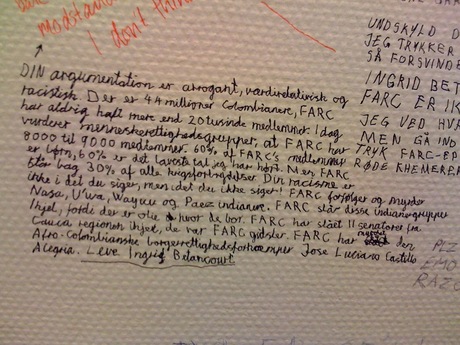 modsta
I don't thin
DIN argumentation er arrogant, værdirelativisk og
racistisk. Der er 44 millioner Colombianere, FARC
har aldrig haft mere end 20 tusinde medlemmer. I dag
vurderer menneskerettighedsgrupper, at FARC har
8000 til 9000 medlemmer. 60% af FARC's medlemmer
er børn, 60% er det laveste tal jeg har hørt. Men FARC
står bag 30% af alle krigsforbrydelser. Din racisme er
ikke i det du siger, men i det du ikke siger! FARC forfølger og myrder
Nasa, U'wa, Wayuu og Paez indianere. FARC slår disse indianergrupper
ihjel, fordi der er olie hvor de bor. FARC har slået 11 senatorer fra
Cauca regionen ihjel, de var FARC gidsler. FARC har myrdet den
Afro-Colombianske borgerrettighedsforkæmper Jose Luciano Castillo
Alegria. Leve Ingrid Betancourt
UNDSKYLD D
JEG TRYKKER
SÅ FORSVINDE
INGRID BET
FARC ER IK
JEG VED HVA
MEN GÅ IND
TRYK FARC-EP
RØDE KHEMERER
PLZ
EMO
RAZO